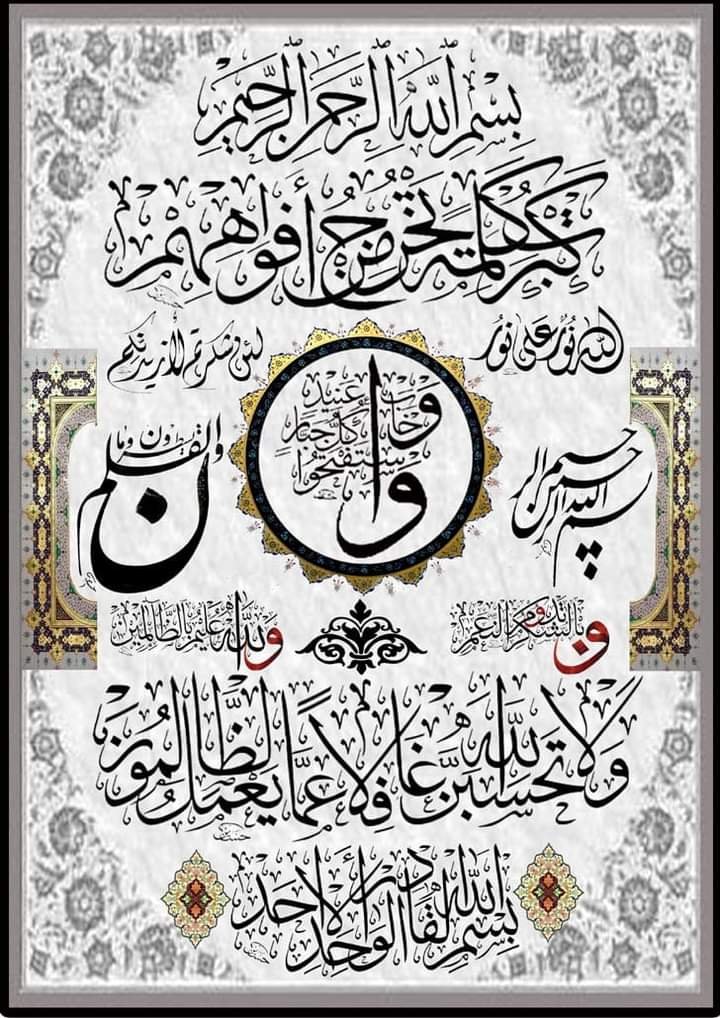 بِسْمِ اللهِ الرَّحْمٰنِ الرَّحِيمِ
كَبُرَتْ كَلِمَةً تَخْرُجُ مِنْ أَفْوَاهِهِمْ
الله نُورٌ عَلَى نُورٌ
لئن شكرتم لأزيدنكم
واستفتحوا وخاب كل جبار عنيد
بسم الله الرحمن الرحيم
ن والقلم وما يسطرون
وبالشكر تدوم النعم
والله عليم بالظالمين
وَلَا تَحْسَبَنَّ اللهَ غَافِلًا عَمَّا يَعْمَلُ الظَّالِمُونَ
بسم الله القادر الواحد الأحد